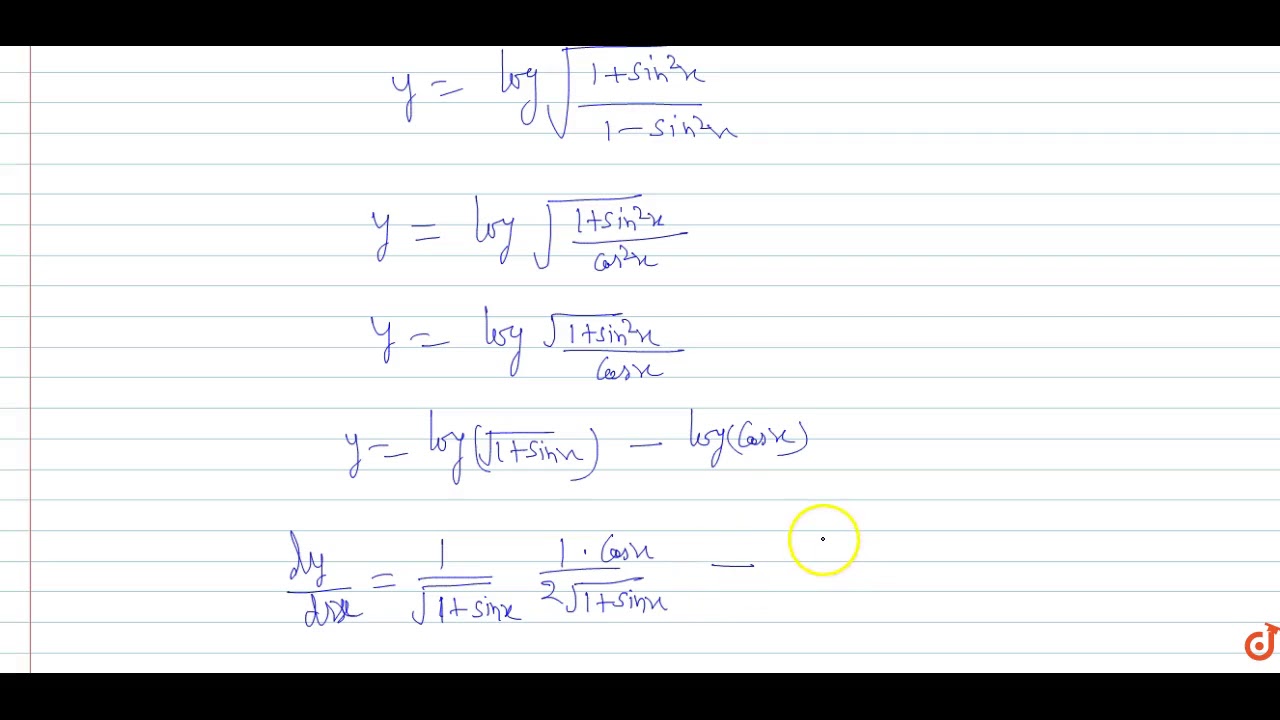 y = log √((1+sin²x)/(1-sin²x))
y = log √((1+sin²x)/(cos²x))
y = log (√(1+sin²x))/(cosx)
y = log(√(1+sinx)) - log(cosx)
dy/dx = 1/√(1+sinx) (1·cosx)/(2√(1+sinx)) -